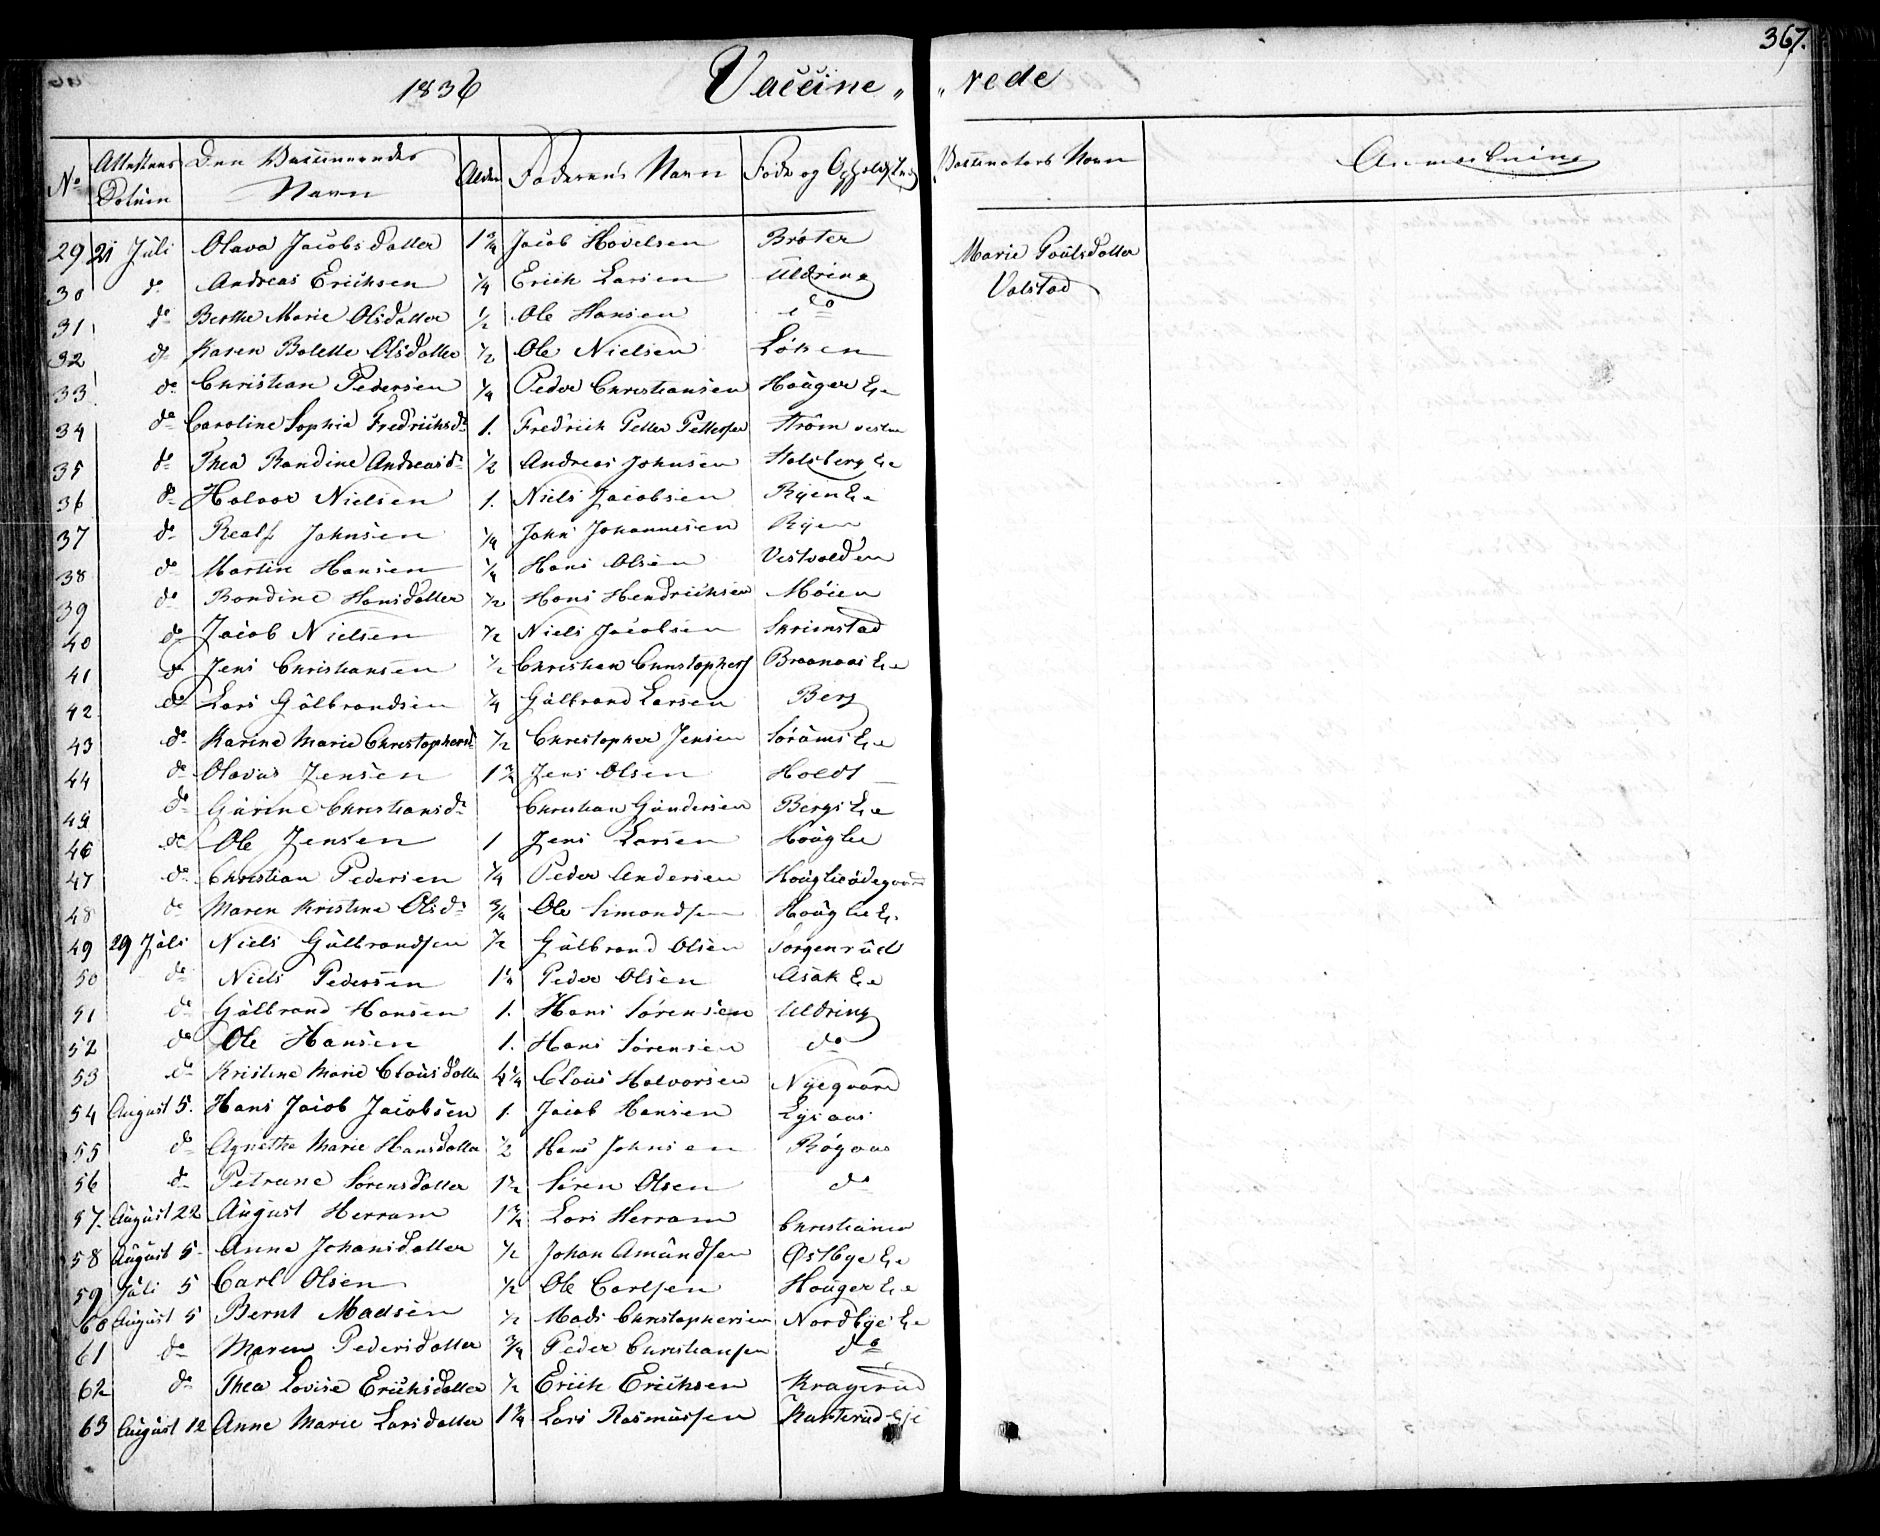 367.
1836 Vaccine„ „rede
No Attestens Datum Den Vaccinerendes Navn Alder Faderens Navn Føde og Opholdssted Vaccinateurs Navn Anmærkning
29 21 Juli Olava Jacobsdatter 1 3/4 Jacob Hovelsen Bråter Marie Poulsdatter
30 do Andreas Erichsen 1/4 Erich Larsen Uldring Valstad
31 do Berthe Marie Olsdatter 1/2 Ole Hansen do
32 do Karen Bolette Olsdatter 1/2 Ole Nielsen Løken
33 do Christian Pedersen 1/4 Peder Christiansen Houger Eie
34 do Caroline Sophie Fredrichsdr 1. Fredrich Petter Pettersen Strøm vestre
35 do Thea Randine Andreasdr 1/2 Andreas Johnsen Stalsberg Eie
36 do Halvor Nielsen 1. Niels Jacobsen Ryen Eie
37 do Realf Johnsen 1/4 John Johannesen Ryen
38 do Martin Hansen 1/4 Hans Olsen Vestvolden
39 do Randine Hansdatter 1/2 Hans Hendrichsen Møien
40 do Jacob Nielsen 1/2 Niels Jacobsen Skrimstad
41 do Jens Christiansen 1/2 Christian Christophers Braanaas Eie
42 do Lars Gulbrandsen 1/4 Gulbrand Larsen Berg
43 do Karine Marie Christophersd 1/2 Christopher Jensen Sørums Eie
44 do Olavus Jensen 1 1/2 Jens Olsen Holdt
45 do Gurine Christiansdr Christian Gundersen Bergs Eie
46 do Ole Jensen 1 Jens Larsen Houglie
47 do Christian Pedersen 1/4 Peder Andersen Houglieødegaard
48 do Maren Kristine Olsdr 3/4 Ole Simondsen Houglie Ei
49 29 Juli Niels Gulbrandsen 1/2 Gulbrand Olsen Torgenrud
50 do Niels Pedersen 1 1/4 Peder Olsen Asak Eie
51 do Gulbrand Hansen 1. Hans Sørensen Uldring
52 do Ole Hansen 1. Hans Sørensen do
53 do Kristine Marie Clausdatter 4 1/4 Claus Halvorsen Nyegaard
54 August 5. Hans Jacob Jacobsen 1. Jacob Hansen
55 do Agnethe Marie Hansdatter 1/2 Hans Johnsen Røgaas
56 do Petrune Sørensdatter 1 1/2 Søren Olsen do
57. August 22 August Herram 1 3/4 Lars Herram Christiania
58 August 5 Anne Johansdatter 1/2 Johan Amundsen Østbye Eie
59 Juli 5 Carl Olsen 1/2 Ole Carlsen Houger Eie
60 August 5 Bernt Madsen 1/2 Mads Christophersen Nordbye Eie
61 do Maren Pedersdatter 3/4 Peder Christiansen do
62 do Thea Lovise Erichsdatter 1/2 Erich Erichsen Kragerud
63 August 12 Anne Marie Larsdatter 1 1/4 Lars Rasmussen